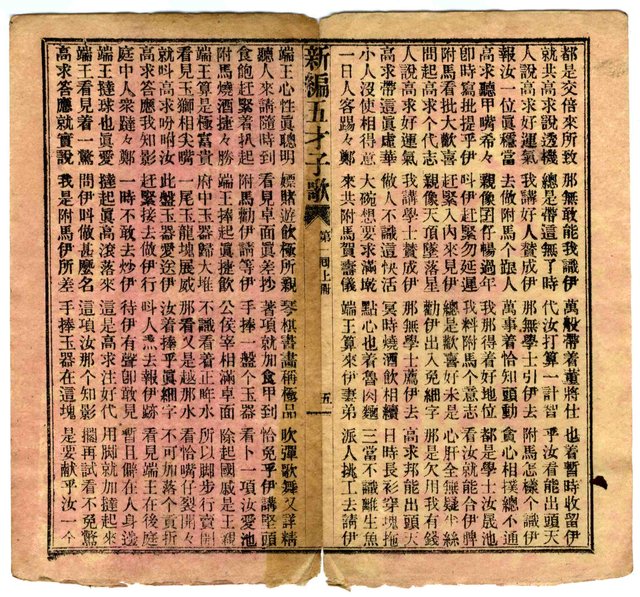 都是交倍來所致 那無敢能我識伊 萬般帶着董將仕 也着暫時收留伊
就共高求說透機 總是帶這無了時 代汝打算一計智 乎汝看能出頭天
人說高求好運氣 我講好人賛成伊 那無學士引伊去 附馬怎樣个識伊
報汝一位眞穩當 去做附馬个跟人 萬事着恰知頭動 貪心相撲總不通
高求聽甲嘴希々 親像囝仔暢過年 我那得着好地位 都是學士汝晟池
卽時寫批提乎伊 叫伊赶緊勿延遲 我料附馬个意志 看汝就能合伊脾
附馬看批大歡喜 赶緊入內來見伊 總是歡喜好未盡 心肝全無疑半絲
問起高求个代志 親像天頂墜落星 勸伊出入免細字 那是欠用我有錢
人說高求好運氣 我講學士賛成伊 那無學士薦伊去 高求邦能出頭天
高求帶這眞虛華 做人不識這快活 冥時燒酒飲相續 日時長衫穿塊拖
小人沒使相得意 大碗想要求滿墘 點心也着魯肉麵 三當不識離生魚
一日人客踢々鄭 來共附馬賀壽儀 端王算來伊妻弟 派人挑工去請伊
新編五才子歌 第 回上南 五
端王心性眞聰明 嫖賭遊飲極所親 琴棋書畫稱極品 吹彈歌舞又詳精
聽人來請隨時到 看見卓面眞差抄 著項就加食甲到 恰免乎伊講堅頭
食飽赶緊着扒起 附馬勸伊請等伊 手捧一盤个玉器 看卜一項汝愛池
附馬燒酒捷々勝 端王捧起眞捷飲 公侯宰相滿卓面 除起國戚是王親
端王算是極富貴 府中玉器歸大堆 不識看着正水 所以脚步行賣開
看見玉獅相尖嘴 一尾玉龍塊展威 那看又是越那水 看恰嘴仔裂開々
就叫高求吩咐汝 此盤玉器愛送伊 汝着捧乎眞細字 不可加落个責折
高求答應我知影 赶緊接去做伊行 呌人去報伊跡 看見端王在後庭
庭中人衆躂々鄭 一時不敢去炒伊 待伊有聲卽敢見 暫且僻在人身邊
端王撻球也眞愛 撻起眞高滾落來 這是高求注好代 用脚就加撻起來
端王看見着一驚 問伊叫做甚麽名 這項汝那个知影 攔再試看不免驚
高求答應就實說 我是附馬伊所差 手捧玉器在這塊 是要献乎汝一个